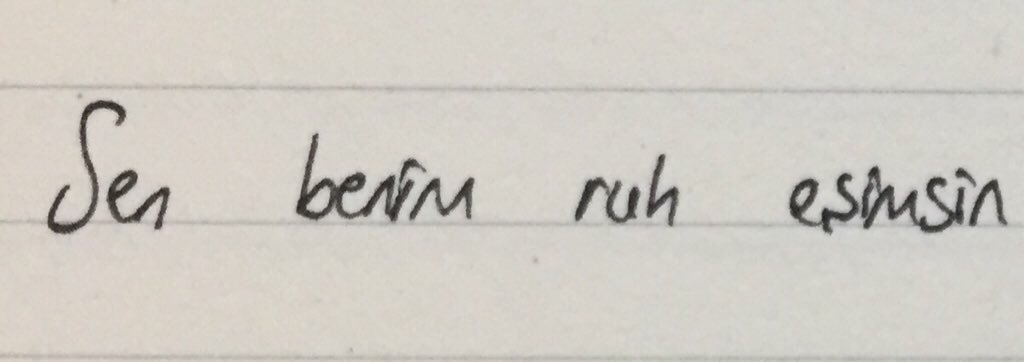 Sen benim ruh eşimsin